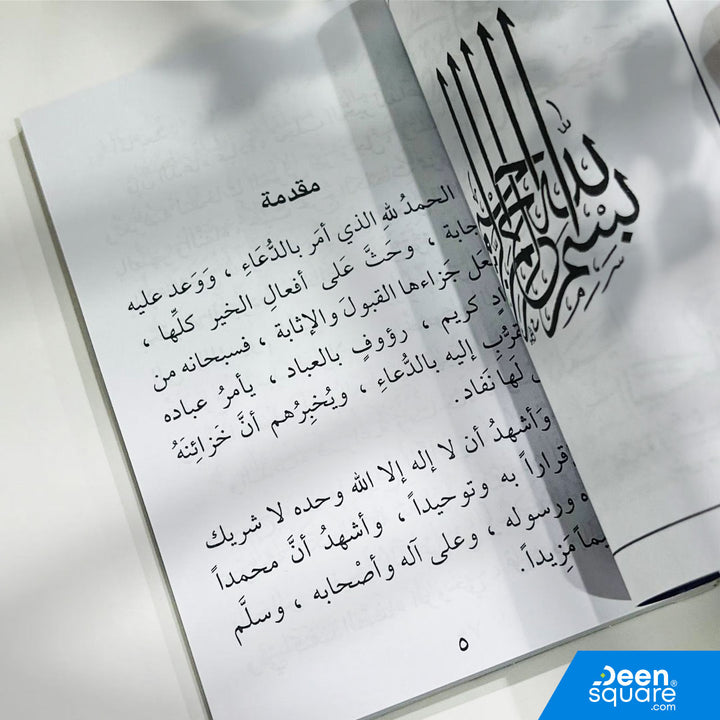 بسم الله الرحمن الرحيم
مقدمة
الحمدُ للهِ الذي أمَر بالدُّعَاءِ ، وَوَعد عليه
جابة ، وحَثَّ عَلى أفعالِ الخير كلِّها ،
عَل جَزاءها القبولَ والإثابة ، فسبحانه من
دٍ كريم ، رؤوفٍ بالعباد ، يأمرُ عباده
قرّبِ إليه بالدُّعاءِ ، ويُخبِرُهم أنَّ خَزائِنَهُ
لَها نَفاد.
وَأشهدُ أن لا إله إلا الله وحده لا شريك
قراراً به وتوحيداً ، وأشهدُ أنَّ محمداً
ه ورسوله ، وعلى آله وأصْحابه ، وسلَّم
يماً مَزيداً.
٥
Deen
square®
.com